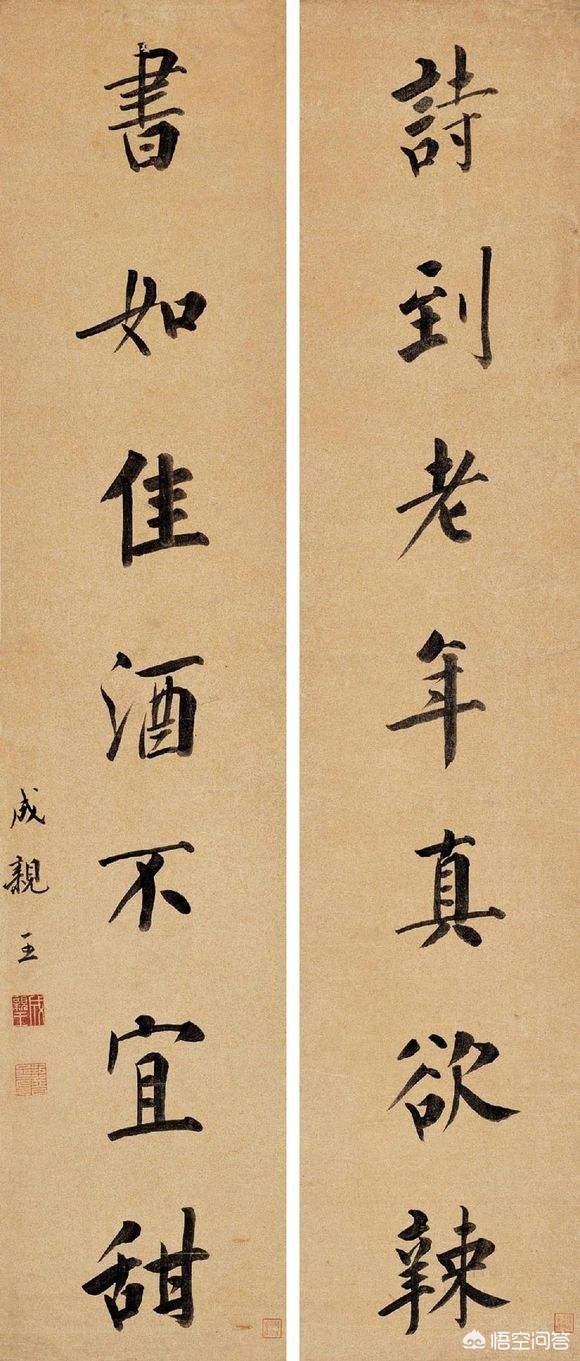 詩到老年真欲辣
書如佳酒不宜甜
成親王
悟空问答